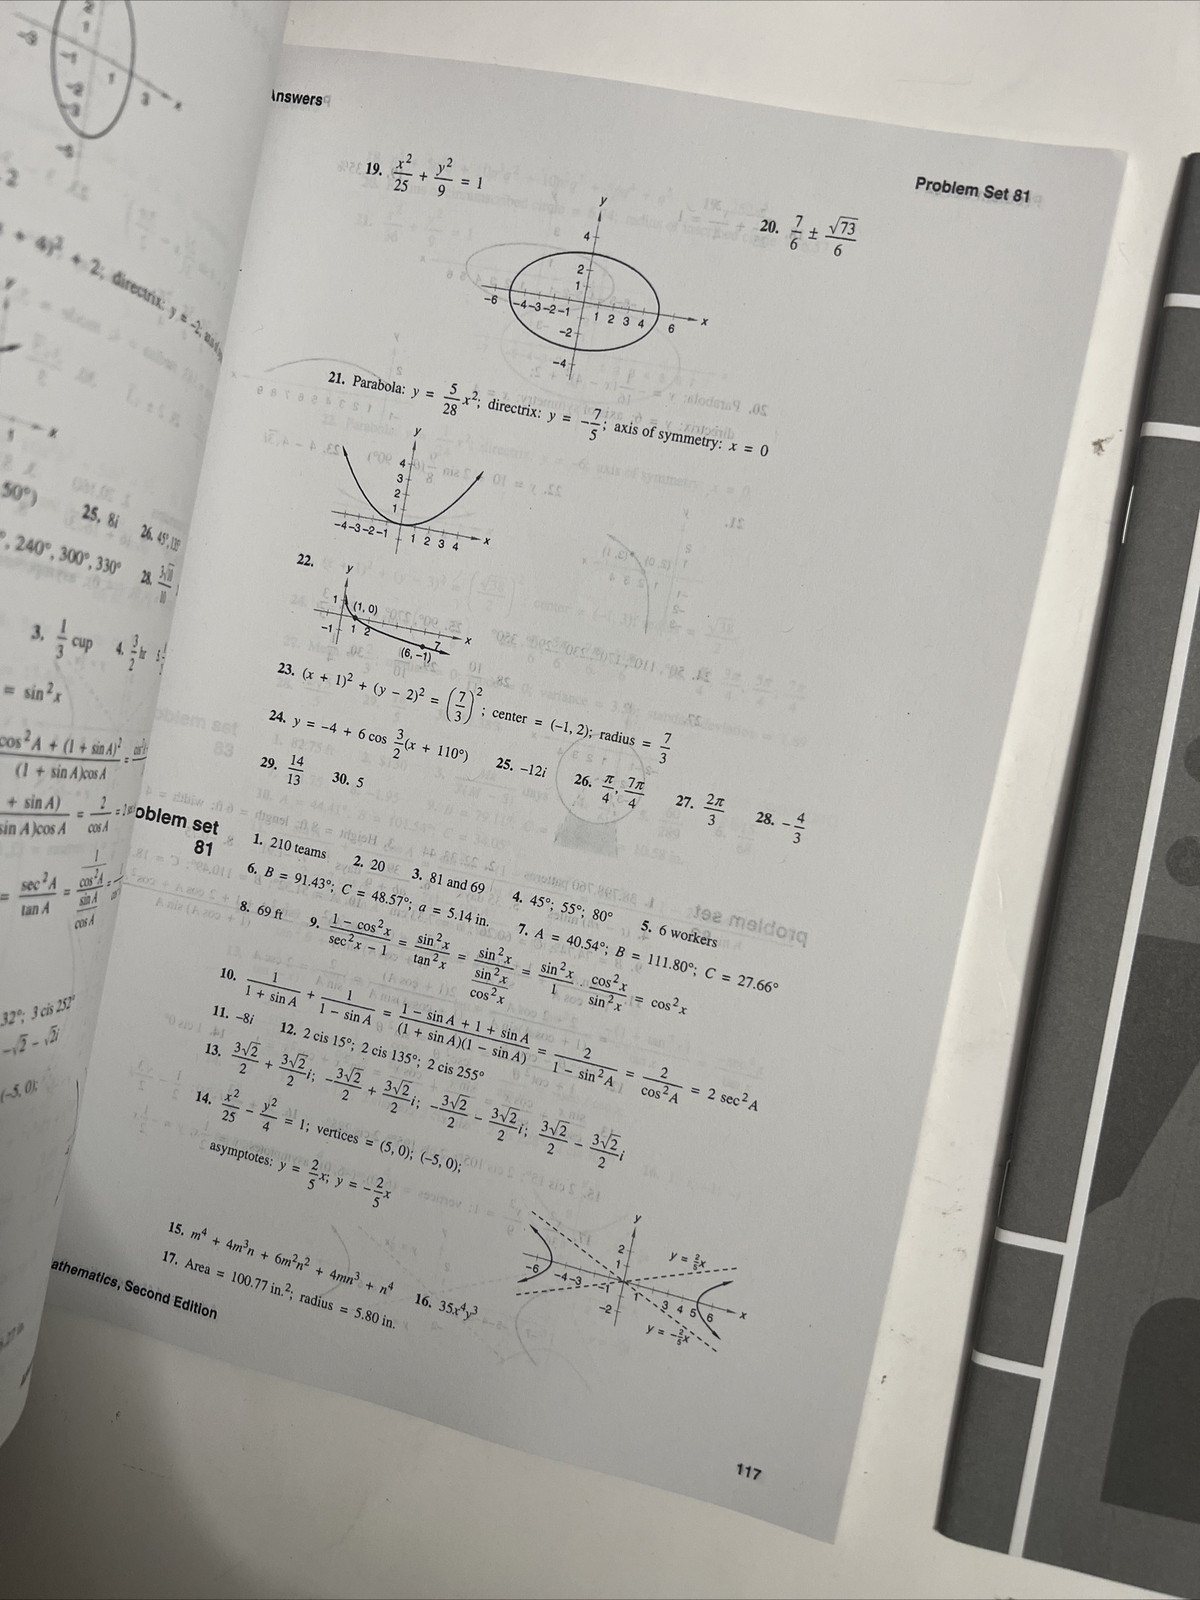 Answers
Problem Set 81
19. x²/25 + y²/9 = 1
20. 7/6 ± √73/6
y
4
2
1
-6 -4 -3 -2 -1 1 2 3 4 6 x
-2
-4
21. Parabola: y = 5/28 x²; directrix: y = -7/5; axis of symmetry: x = 0
y
4
3
2
1
-4 -3 -2 -1 1 2 3 4 x
22.
y
1 (1, 0)
-1 1 2 7 x
(6, -1)
23. (x + 1)² + (y − 2)² = (7/3)²; center = (-1, 2); radius = 7/3
24. y = -4 + 6 cos 3/2(x + 110°) 25. -12i 26. π/4, 7π/4 27. 2π/3 28. -4/3
29. 14/13 30. 5
oblem set
81
1. 210 teams 2. 20 3. 81 and 69 4. 45°; 55°; 80° 5. 6 workers
6. B = 91.43°; C = 48.57°; a = 5.14 in. 7. A = 40.54°; B = 111.80°; C = 27.66°
8. 69 ft 9. (1 − cos²x)/(sec²x − 1) = sin²x/tan²x = sin²x/(sin²x/cos²x) = sin²x/1 cos²x/sin²x = cos²x
10. 1/(1 + sin A) + 1/(1 − sin A) = (1 − sin A + 1 + sin A)/((1 + sin A)(1 − sin A)) = 2/(1 − sin²A) = 2/cos²A = 2 sec²A
11. -8i 12. 2 cis 15°; 2 cis 135°; 2 cis 255°
13. 3√2/2 + 3√2/2 i; -3√2/2 + 3√2/2 i; -3√2/2 − 3√2/2 i; 3√2/2 − 3√2/2 i
14. x²/25 − y²/4 = 1; vertices = (5, 0); (-5, 0);
asymptotes: y = 2/5 x; y = -2/5 x
y
2
1
y = 2/5 x
-6 -4 -3 -1 1 3 4 5 6 x
-2
y = -2/5 x
15. m⁴ + 4m³n + 6m²n² + 4mn³ + n⁴ 16. 35x⁴y³
17. Area = 100.77 in.²; radius = 5.80 in.
athematics, Second Edition
117
1 3 x
+ 4)² + 2; directrix: y = -2;
50°) 25. 8i 26. 45°, 135°
240°, 300°, 330° 28.
3. 1/3 cup 4. 3/2 hr
= sin²x
cos²A + (1 + sin A)²
(1 + sin A)cos A
+ sin A)
sin A)cos A = 2/cos A
= sec²A/tan A = (1/cos²A)/(sin A/cos A)
32°; 3 cis 252°
-√2 − √2i
(-5, 0);